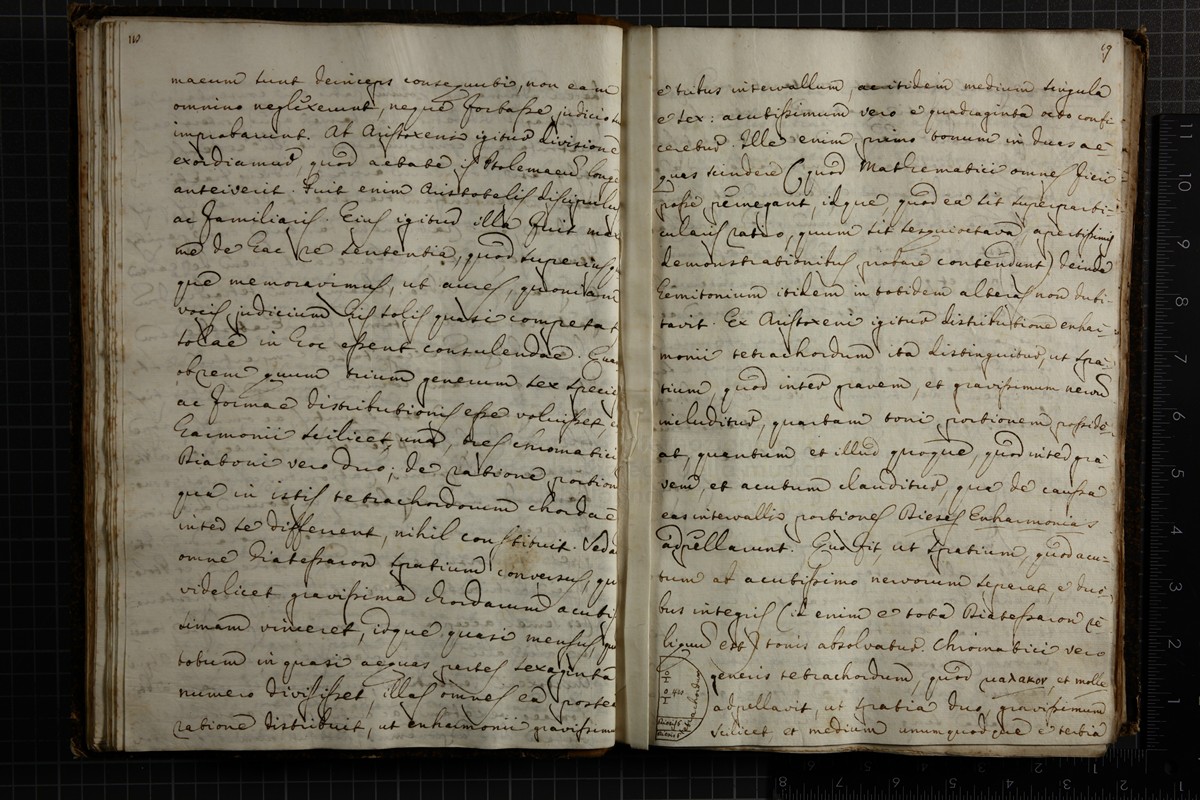 110
maeum sunt deinceps consequuti, non eam
omnino neglexerunt, neque fortasse judicio
improbarunt. At Aristoxeni igitur divisione
exordiamur, quod aetate is Ptolemaeum longe
anteiverit. Fuit enim Aristotelis discipulus
ac familiaris. Eius igitur illa fuit
me de hac re sententia, quod superius
que memoravimus, ut aures, quoniam
vocis judicium his solis quasi competat
solae in hoc essent consulendae. Qua
obrem quum trium generum sex species
ac formae distributionis esse voluisset,
harmonii scilicet unā, tres chromatici
Diatoni vero duo; de ratione portion
que in istis tetrachordorum chordae
inter se different, nihil constituit. Sed
omne Diatessaron spatium conversus, qu
videlicet gravissima chordarum acuti
simam vinceret, idque quasi mensus,
totum in quasi aequas partes sexaginta
numero divisisset, illas omnes ea postea
ratione distribuit, ut enharmonii gravissimu
69
e tribus intervallum, ac itidem medium singula
e sex: acutissimum vero e quadraginta octo confi
ceretur. Ille enim primo tonum in duas ae-
quas scindere (quod Mathematici omnes fieri
posse pernegant, idque quod ea sit superparti-
cularis ratio, quum sit sesquioctava, apertissimis
demonstrationibus probare contendunt) deinde
hemitonium itidem in totidem alteras non dubi-
tavit. Ex Aristoxeni igitur distributione enhar-
monii tetrachordum ita distinguitur, ut spa-
tium, quod inter gravem, et gravissimum nervū
includitur, quartam toni portionem posside-
at, quantum et illud quoque, quod inter gra
vem, et acutum clauditur, que de caussa
eas intervallis portiones Dieses Enharmonias
adpellarunt. Quo fit ut spatium, quod acu-
tum ab acutissimo nervorum separat, e duo-
bus integris (id enim e tota Diatessaron re
liquum est) tonis absolvatur. Chromatici vero
generis tetrachordum, quod μαλακον et molle
adpellavit, ut spatia duo, gravissimum
scilicet, et medium unumquodque e tertia